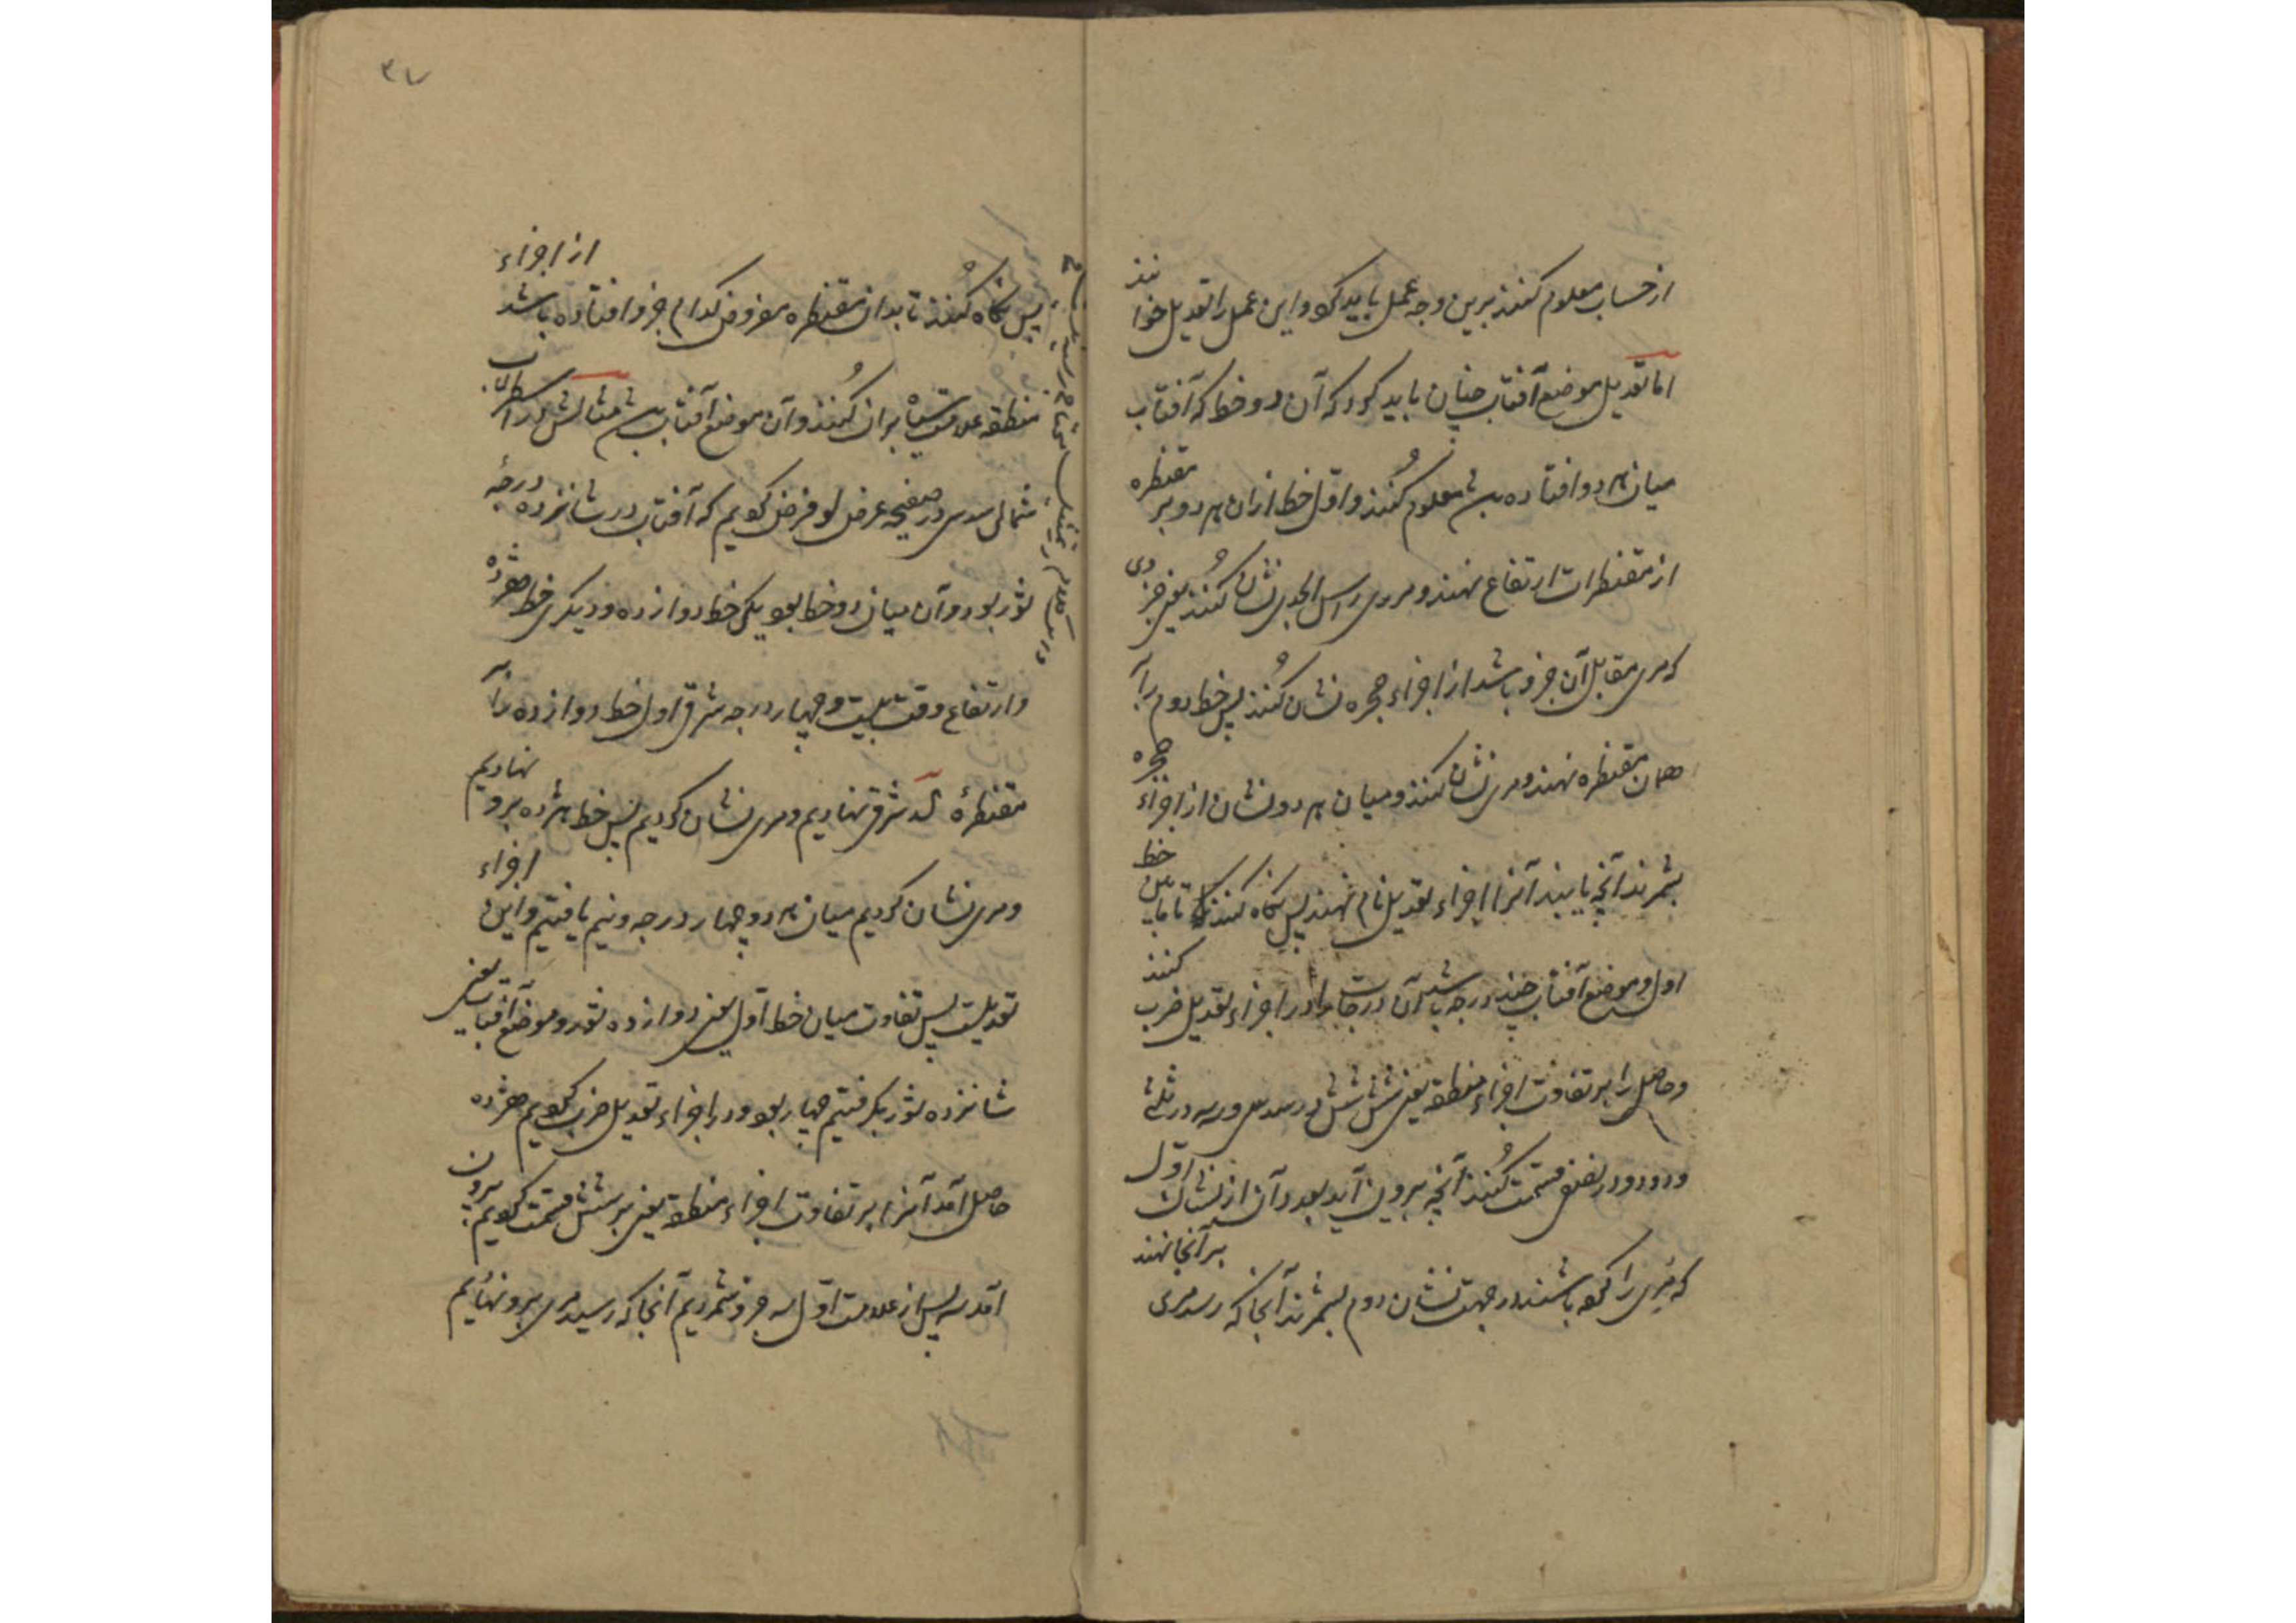 از حساب معلوم کنند برین وجه عمل باید کرد و این عمل را تعدیل خوانند
اما تعدیل موضع آفتاب چنان باید کرد که آن دو خط که آفتاب
میان هر دو افتاده باشد معلوم کنند و اول خط از ان هر دو بر مقنطره
از مقنطرات ارتفاع نهند و مری راس الجدی نشان کنند یعنی جزوی
که مری مقابل آن جزو باشد از اجزاء حجره نشان کنند پس خط دوم را بر
همان مقنطره نهند و مری نشان کنند و میان هر دو نشان از اجزاء حجره
بشمرند آنچه یابند آنرا اجزاء تعدیل نام نهند پس نگاه کنند که تا میان خط
اول و موضع آفتاب چند درجه باشد آن درجات را در اجزاء تعدیل ضرب کنند
و حاصل را بر تفاوت اجزاء منطقه یعنی شش شش در سدسی و سه در ثلثی
و دو در نصفی قسمت کنند آنچه بیرون آید بعدد آن از نشان اول
که مری را کرده باشند در جهت نشان دوم بشمرند آنجا که رسد مری بر آنجا نهند
۳۷
پس نگاه کنند تا بدان مقنطره مفروض کدام جزو افتاده باشد از اجزاء
منطقه علامت سیاه بران کنند و آن موضع آفتاب باشد مثالش در اسطرلاب
شمالی سدسی در صفیحه عرض لو فرض کردیم که آفتاب در شانزده درجه
ثور بود و آن میان دو خط بود یکی خط دوازده و دیگری خط هژده
و ارتفاع وقت بیست و چهار درجه شرقی اول خط دوازده را بر
مقنطرهٔ کد شرقی نهادیم و مری نشان کردیم پس خط هژده برو نهادیم
و مری نشان کردیم میان هر دو چهار درجه و نیم یافتیم و این اجزاء
تعدیلست پس تفاوت میان خط اول یعنی دوازده ثور و موضع آفتاب یعنی
شانزده ثور بگرفتیم چهار بود در اجزاء تعدیل ضرب کردیم هژده
حاصل آمد آنرا بر تفاوت اجزاء منطقه یعنی بر شش قسمت کردیم بیرون
آمد سه پس از علامت اول سه جزو شمردیم آنجا که رسید مری برو نهادیم